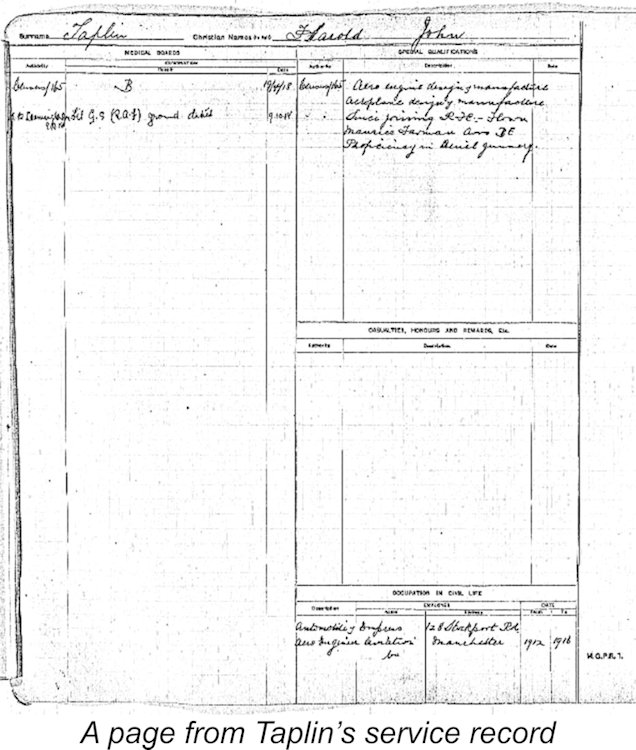 Surname Taplin Christian Names in full Harold John
MEDICAL BOARDS
Authority Result Date
B
Fit G.S (R.A.F) ground duties 9.10.18
SPECIAL QUALIFICATIONS
Authority Description Date
Aero engine design & manufacture
Aeroplane design & manufacture
Since joining R.F.C. - Flown
Maurice Farman Avro BE
Proficiency in Aerial gunnery.
CASUALTIES, HONOURS AND REWARDS, Etc.
Authority Description Date
OCCUPATION IN CIVIL LIFE
Description EMPLOYER DATE
Name Address From To
Automobile & Empress 128 Stockport Rd
Aero Engineer Aviation Manchester 1912 1916
A page from Taplin's service record